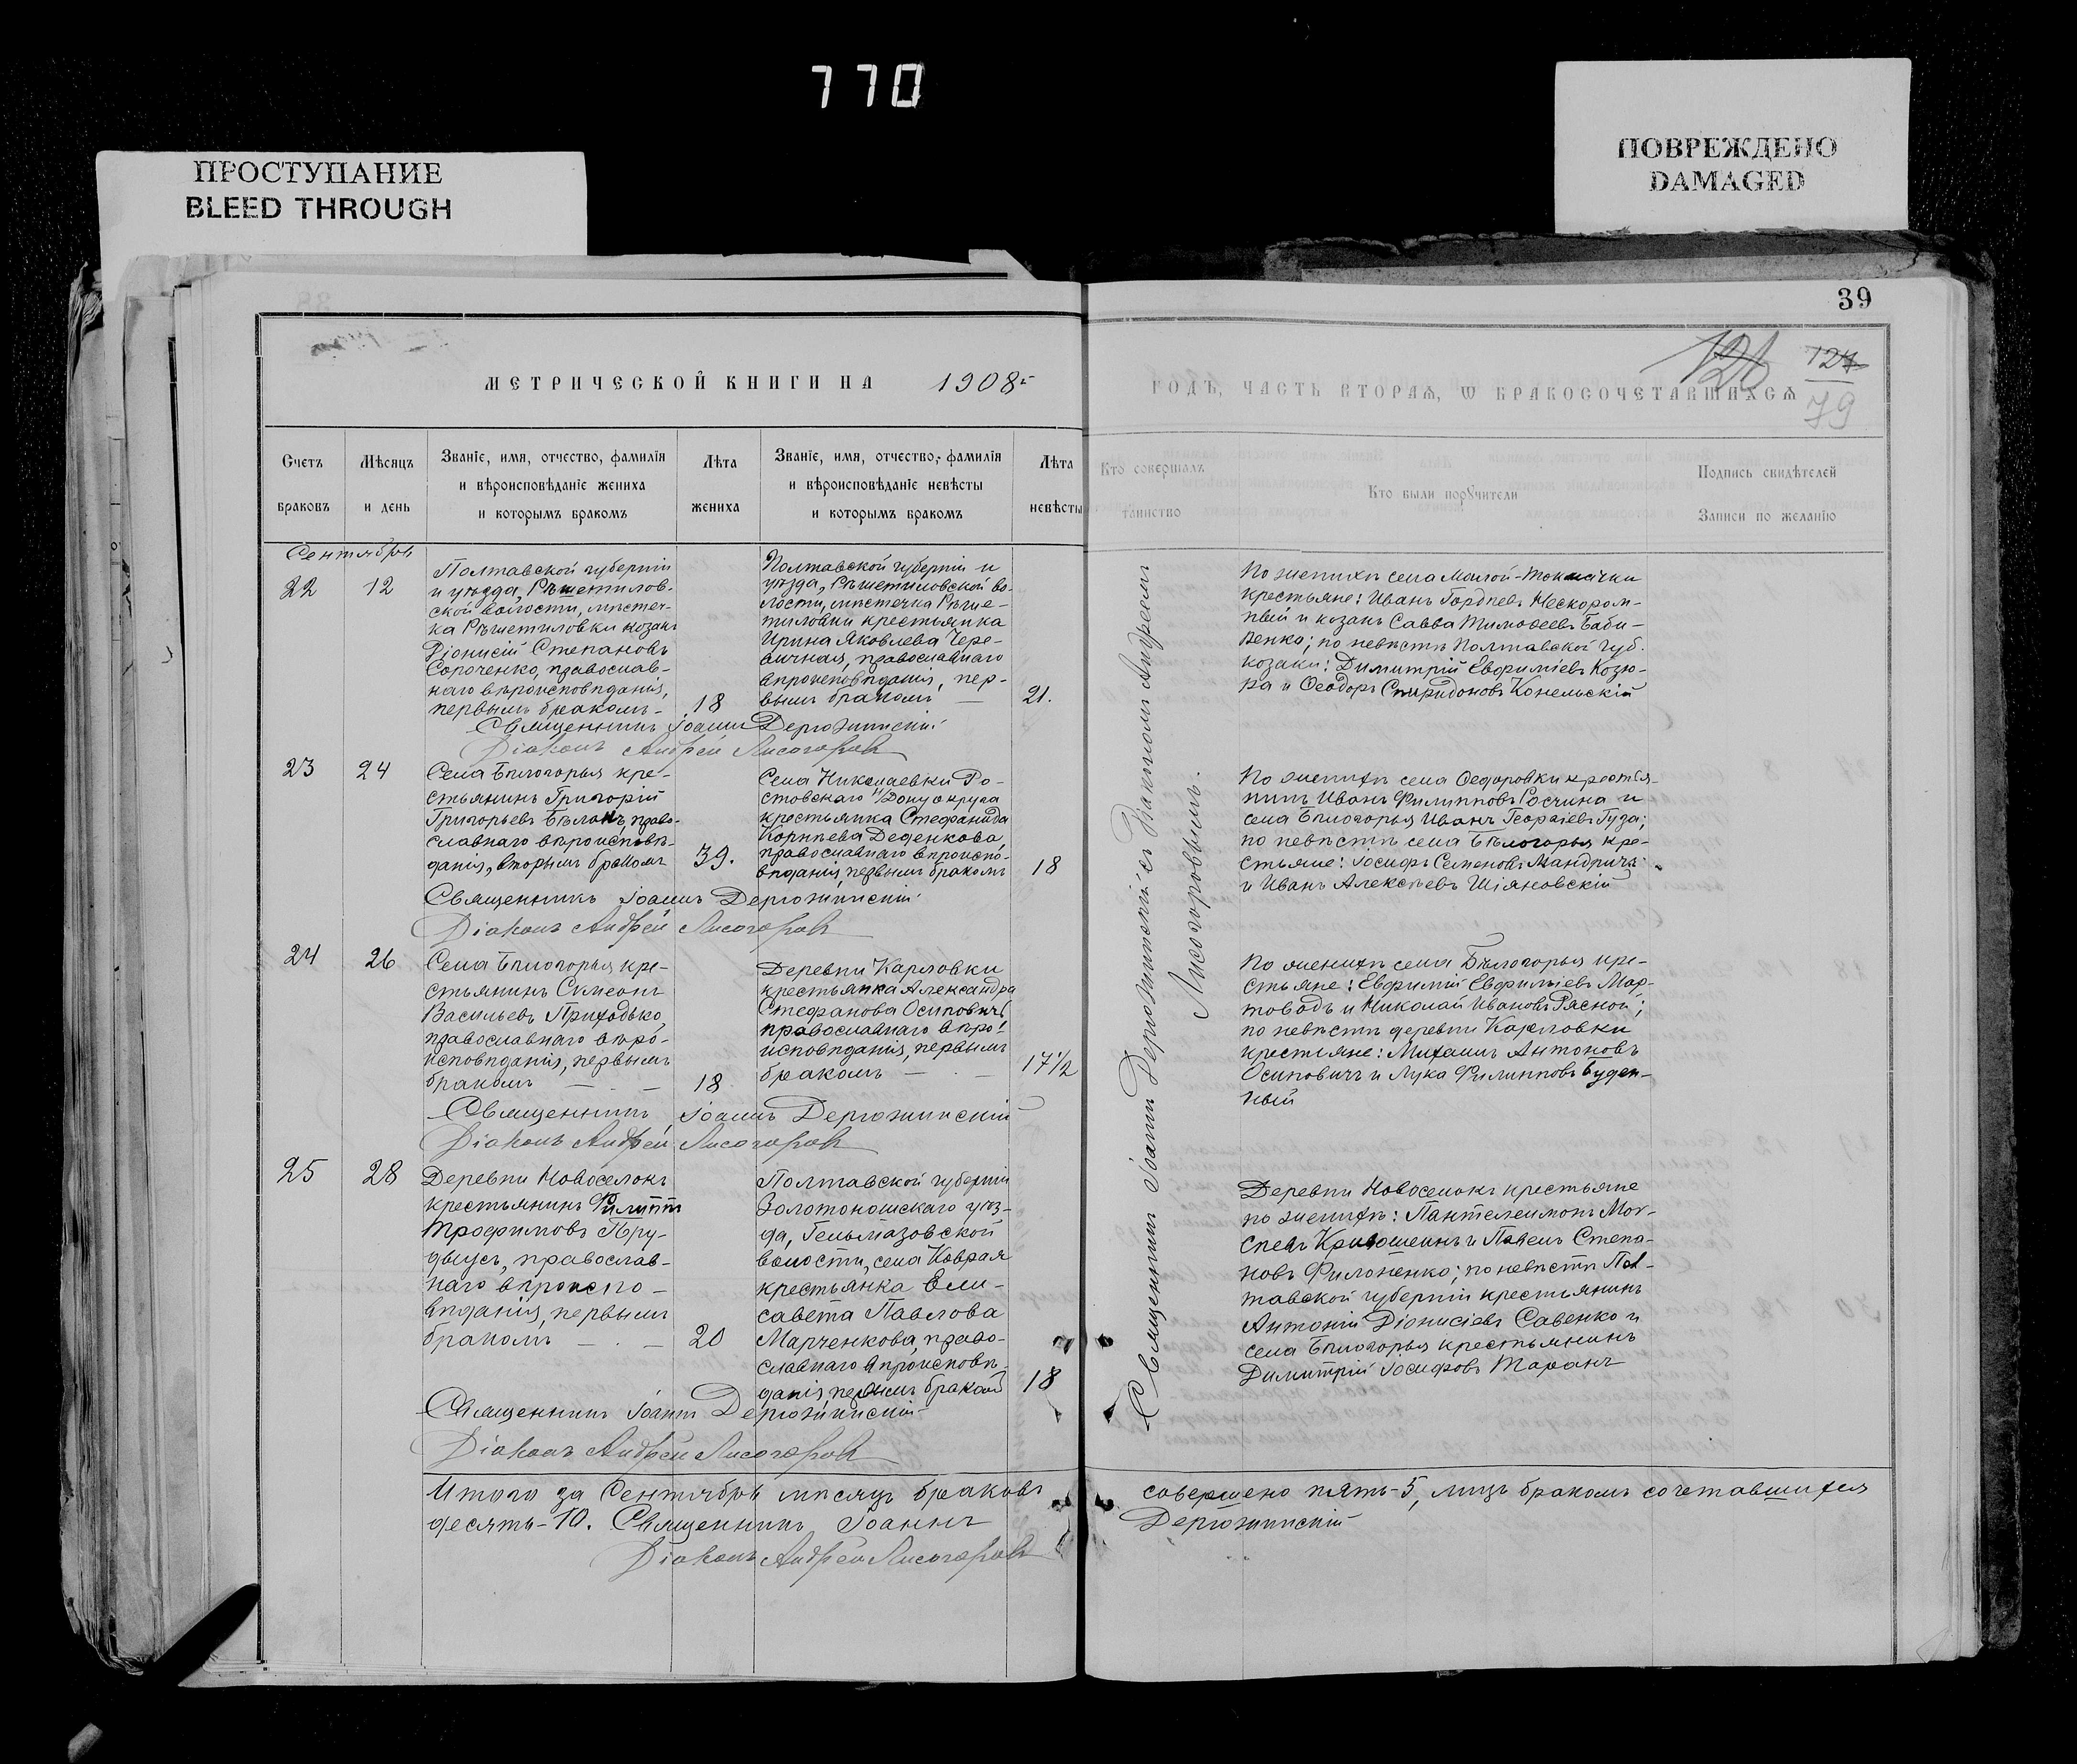 770
ПРОСТУПАНИЕ
BLEED THROUGH
ПОВРЕЖДЕНО
DAMAGED
39
126
124
79
МЕТРИЧЕСКОЙ КНИГИ НА 1908 г.
ГОДЪ, ЧАСТЬ ВТОРАѦ, Ѡ БРАКОСОЧЕТАВШИХСѦ
Счетъ
браковъ
Мѣсяцъ
и день
Званіе, имя, отчество, фамилія
и вѣроисповѣданіе жениха
и которымъ бракомъ
Лѣта
жениха
Званіе, имя, отчество, фамилія
и вѣроисповѣданіе невѣсты
и которымъ бракомъ
Лѣта
невѣсты
Кто совершалъ
таинство
Кто были поручители
Подпись свидѣтелей
Записи по желанію
Сентябрь
22
12
Полтавской губерніи
и уѣзда, Рѣшетилов-
ской волости, мѣстеч-
ка Рѣшетиловки козакъ
Діонисій Степановъ
Сороченко, православ-
наго вѣроисповѣданія,
первымъ бракомъ-
18
Полтавской губерніи и
уѣзда, Рѣшетиловской во-
лости, мѣстечка Рѣше-
тиловки крестьянка
Ирина Яковлева Чере-
вичная, православнаго
вѣроисповѣданія, пер-
вымъ бракомъ —
21.
По женихѣ села Малой-Токмачки
крестьяне: Иванъ Гордѣевъ Нескором-
ный и козакъ Савва Тимоѳеевъ Баби-
ненко; по невѣстѣ Полтавской губ.
козаки: Димитрій Евфиміевъ Козю-
ра и Ѳеодоръ Спиридоновъ Конельскій
Священникъ Іоаннъ Дергожинскій
Діаконъ Андрей Лисогоровъ
23
24
Села Бѣлогорья кре-
стьянинъ Григорій
Григорьевъ Бѣлокъ, право-
славнаго вѣроисповѣ-
данія, вторымъ бракомъ
39.
Села Николаевки Ро-
стовскаго н/Дону округа
крестьянка Стефанида
Корнѣева Деденкова,
православнаго вѣроиспо-
вѣданія, первымъ бракомъ
18
По женихѣ села Ѳедоровки крестья-
нинъ Иванъ Филипповъ Росчина и
села Бѣлогорья Иванъ Георгіевъ Гуда;
по невѣстѣ села Бѣлогорья кре-
стьяне: Іосифъ Семеновъ Мандричъ
и Иванъ Алексѣевъ Шіяновскій
Священникъ Іоаннъ Дергожинскій
Діаконъ Андрей Лисогоровъ
24
26
Села Бѣлогорья кре-
стьянинъ Симеонъ
Васильевъ Приходько,
православнаго вѣро-
исповѣданія, первымъ
бракомъ — . —
18
Деревни Карловки
крестьянка Александра
Стефанова Осиповичъ
православнаго вѣро-
исповѣданія, первымъ
бракомъ — . —
17½
По женихѣ села Бѣлогорья кре-
стьяне: Евфимій Евфиміевъ Мар-
товодъ и Николай Ивановъ Рясной;
по невѣстѣ деревни Карловки
крестьяне: Михаилъ Антоновъ
Осиповичъ и Лука Филипповъ Буден-
ный
Священникъ Іоаннъ Дергожинскій
Діаконъ Андрей Лисогоровъ
25
28
Деревни Новоселокъ
крестьянинъ Филиппъ
Трофимовъ Пру-
дьусъ, православ-
наго вѣроиспо-
вѣданія, первымъ
бракомъ — . —
20
Полтавской губерніи
Золотоношскаго уѣз-
да, Гельмязовской
волости, села Коврая
крестьянка Ели-
савета Павлова
Марченкова, право-
славнаго вѣроисповѣ-
данія, первымъ бракомъ
18
Деревни Новоселокъ крестьяне
по женихѣ: Пантелеимонъ Мог-
сѣевъ Кривошеинъ и Павелъ Степа-
новъ Филоненко; по невѣстѣ Пол-
тавской губерніи крестьянинъ
Антоній Діонисіевъ Савенко и
села Бѣлогорья крестьянинъ
Димитрій Іосифовъ Таранъ
Священникъ Іоаннъ Дергожинскій
Діаконъ Андрей Лисогоровъ
Священникъ Іоаннъ Дергожинскій съ Діакономъ Андреемъ
Лисогоровымъ.
Итого за Сентябрь мѣсяцъ браковъ совершено пять-5, лицъ бракомъ сочетавшихся
десять-10. Священникъ Іоаннъ Дергожинскій
Діаконъ Андрей Лисогоровъ